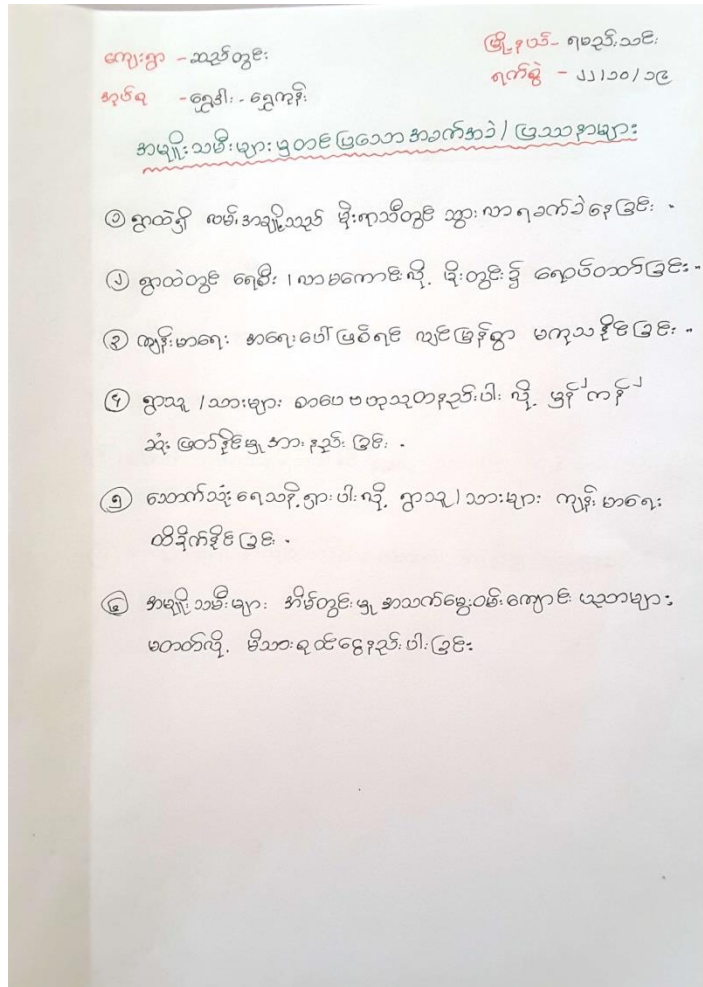 ကျေးရွာ - ဆည်တွင်း မြို့နယ် - ရမည်းသင်း
အုပ်စု - ရွှေဒါး - ရွှေကုန်း ရက်စွဲ - ၂၂/၁၀/၁၉
အမျိုးသမီးများမှတင်ပြသောအခက်အခဲ/ပြဿနာများ
၁ ရွာထဲရှိ လမ်းအချို့သည် မိုးရာသီတွင် သွားလာရခက်ခဲနေခြင်း .
၂ ရွာထဲတွင် ရေစီး/လာမကောင်းလို့ မိုးတွင်း၌ ရေဝပ်တတ်ခြင်း..
၃ ကျန်းမာရေး အရေးပေါ်ဖြစ်ရင် လျင်မြန်စွာ မကုသနိုင်ခြင်း ..
၄ ရွာသူ/သားများ စာပေဗဟုသုတနည်းပါးလို့ မှန်/ကန်
ဆုံးဖြတ်နိုင်မှုအားနည်းခြင်း .
၅ သောက်သုံးရေသန့်ရှားပါးလို့ ရွာသူ/သားများ ကျန်းမာရေး
ထိခိုက်နိုင်ခြင်း .
၆ အမျိုးသမီးများ အိမ်တွင်းမှု အသက်မွေးဝမ်းကျောင်း ပညာများ
မတတ်လို့ မိသားစုဝင်ငွေနည်းပါးခြင်း